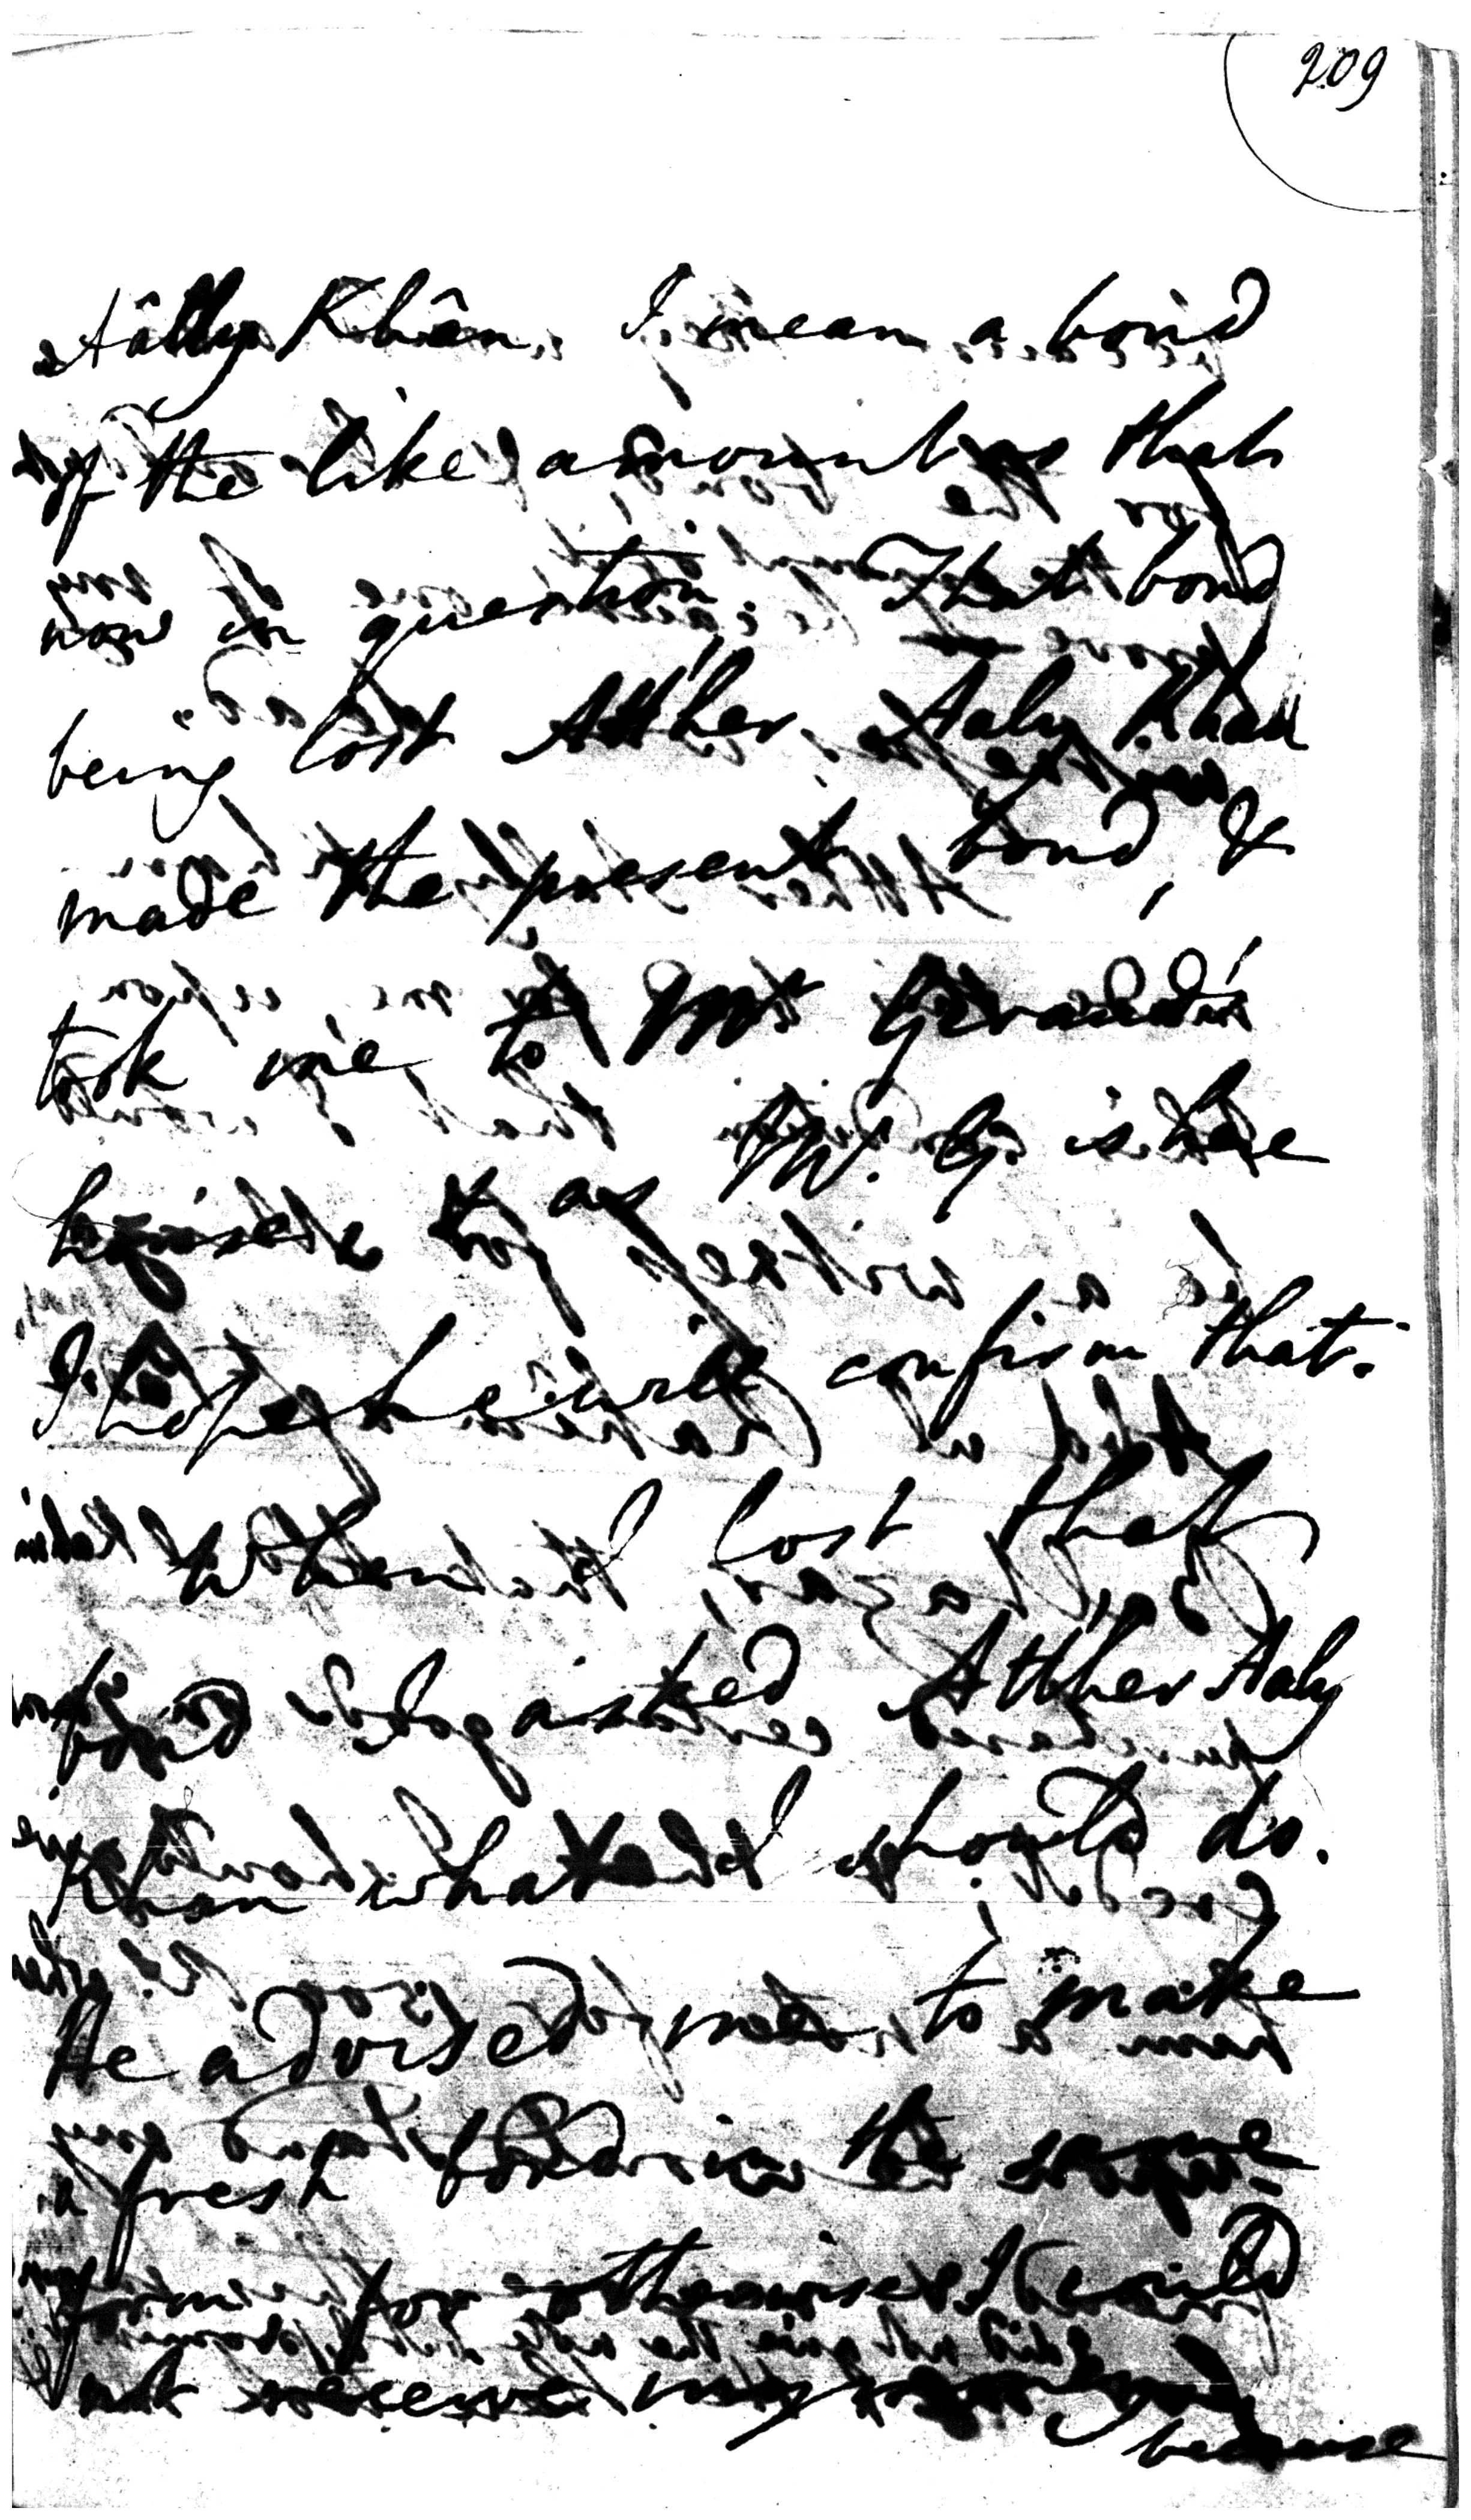 209
Aâlly Khân. I mean a bond
of the like amount as that
now in question. That bond
being lost Atther Aaly Khan
made the present bond, &
took me to Mr Grand's
house & as Mr. G. is here
I hope he will confirm that.
When I lost that
bond I asked Atther Aaly
Khan what I should do.
He advised me to make
a fresh bond in the same
form for otherwise I could
not receive my
because